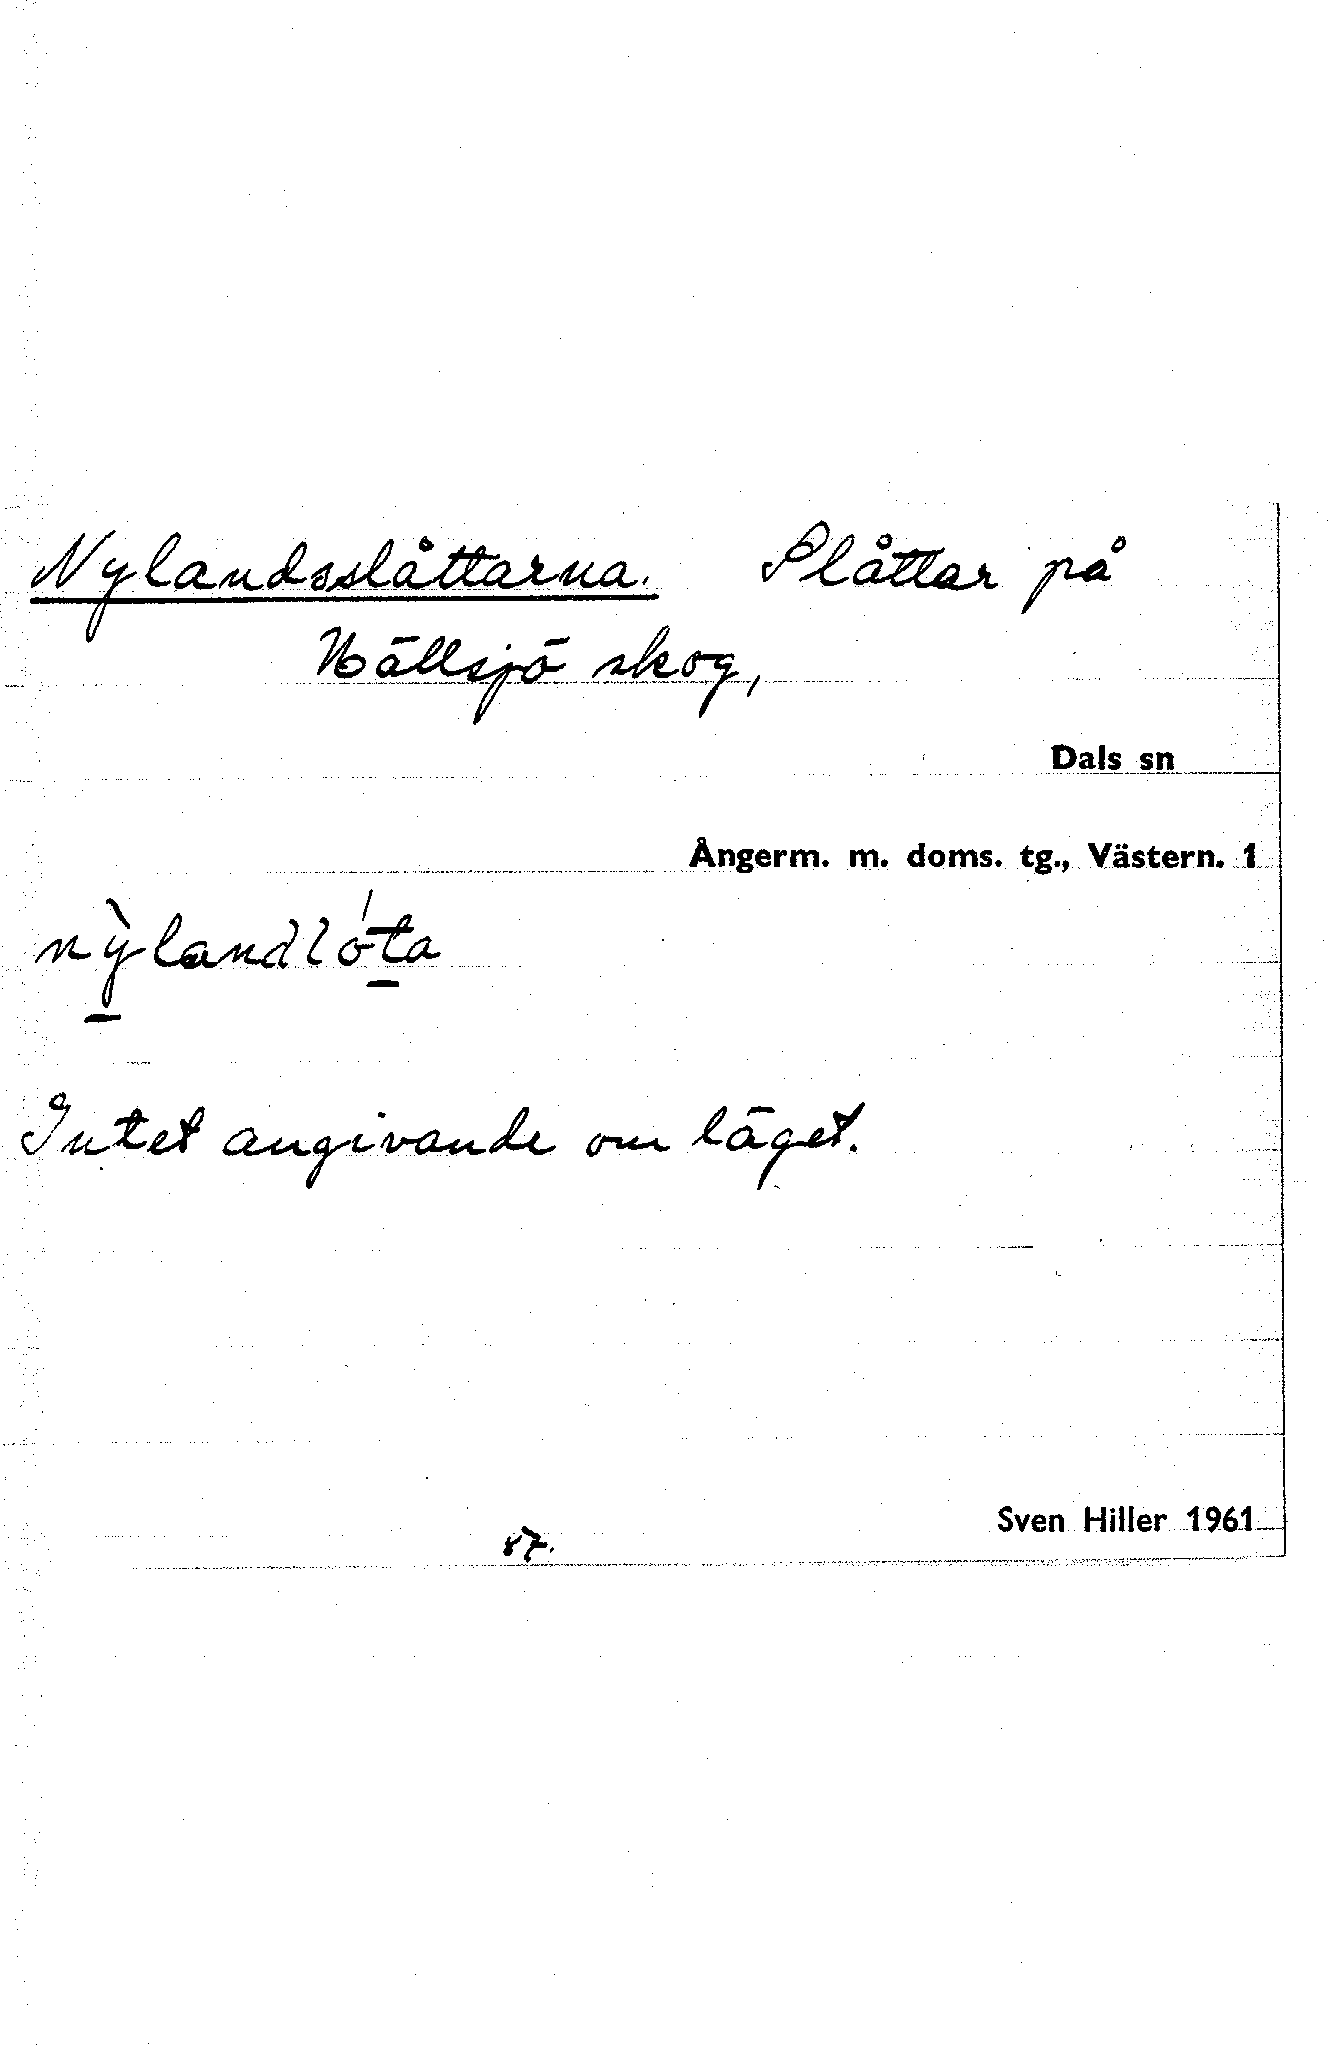 Nylandsslåttarna. Slåttar på
Hällsjö skog,
Dals sn
Ångerm. m. doms. tg., Västern. 1
nỳlandlóta
Intet angivande om läget.
Sven Hiller 1961
87.